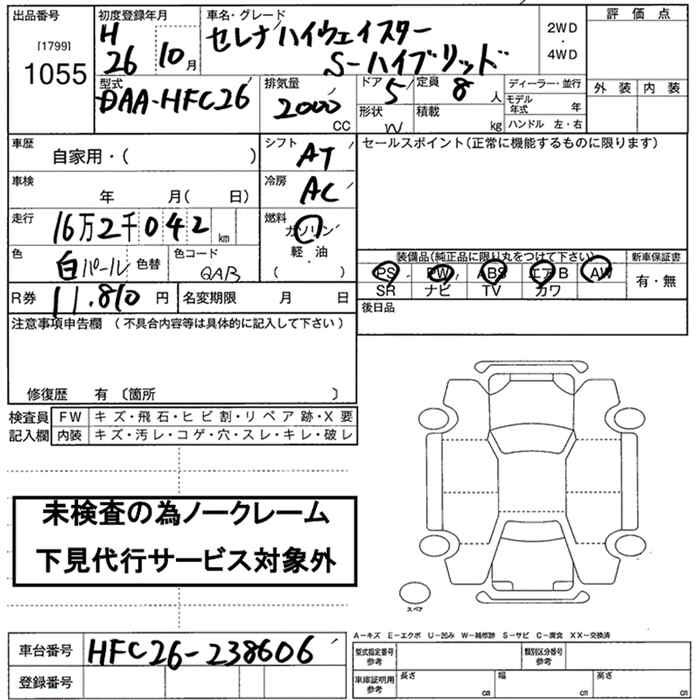 出品番号
[1799]
1055
初度登録年月
H
26 10月
車名・グレード
セレナ ハイウェイスター
S-ハイブリッド
2WD
・
4WD
評価点
外装 内装
型式
DAA-HFC26
排気量
2000
CC
ドア 5
定員 8 人
形状 W
積載 kg
ディーラー・並行
モデル年式 年
ハンドル 左・右
車歴
自家用・( )
シフト
AT
車検
年 月( 日)
冷房
AC
走行
16万2千042 km
燃料
ガソリン
軽・油
( )
色
白パール
色替
色コード
QAB
R券
11,810円
名変期限 月 日
セールスポイント(正常に機能するものに限ります)
装備品(純正品に限り丸をつけて下さい)
PS PW ABS エアB AW
SR ナビ TV カワ
新車保証書
有・無
後日品
注意事項申告欄 (不具合内容等は具体的に記入して下さい)
修復歴 有〔箇所 〕
検査員記入欄
FW キズ・飛石・ヒビ割・リペア跡・X要
内装 キズ・汚レ・コゲ・穴・スレ・キレ・破レ
未検査の為ノークレーム
下見代行サービス対象外
スペア
A-キズ E-エクボ U-凹み W-補修跡 S-サビ C-腐食 XX-交換済
車台番号 HFC26-238606
登録番号
型式指定番号参考
類別区分番号参考
車庫証明用参考
長さ cm 幅 cm 高さ cm